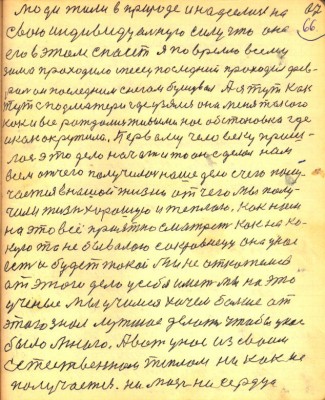 люди жили в природе и надеялись на
свою индивидуальную силу что она
его в этом спасет я поверил всему
зима проходило месец последний проходил фев-
раль он последним снегом бушевал А я тут как
тут с под матери где взялся она меня такого
как и все рождался живым нас обстановка где
и как окружила. Первому человеку приш-
лося это дело начать и то он сделал нам
всем от чего получилось наше дело с чего полу-
чается в нашой жизни от чего мы полу-
чили жизнь хорошую и теплою. Как нам
на это всё приятно смотреть как на ка-
кую то не бывалою сокровищу она у нас
есть и будет такой Мы не откажемся
от этого дело у себя иметь мы на это
ученые мы учимся хочем больше от
этого знал лутшое делать чтобы у нас
было много. А вот у нас из своим
естественным теплом ни как не
получается. ни мозг ни сердце
66